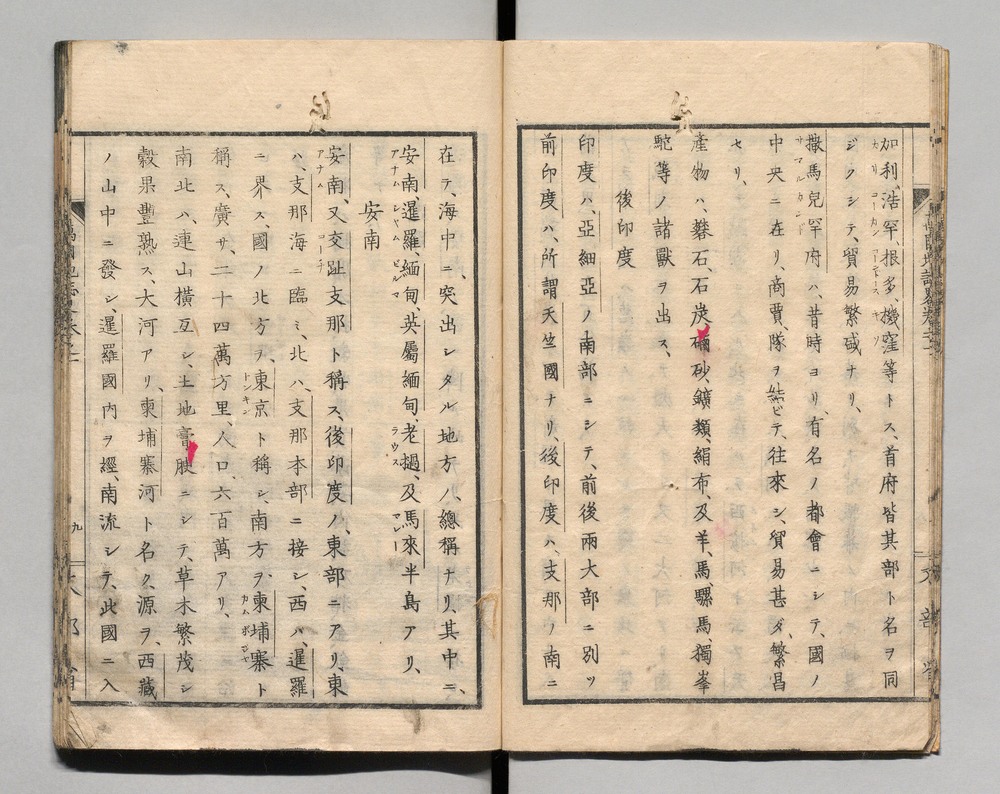 加利、浩罕、根多、機窪等トス、首府皆其部ト名ヲ同
ジクシテ、貿易繁盛ナリ、
撒馬兒罕府ハ、昔時ヨリ、有名ノ都會ニシテ、國ノ
中央ニ在リ、商賈、隊ヲ結ビテ、往來シ、貿易甚ダ、繁昌
セリ、
產物ハ、礬石、石炭、硇砂、鑛類、絹布、及羊、馬、騾馬、獨峯
駝等ノ諸獸ヲ出ス、
後印度
印度ハ、亞細亞ノ南部ニシテ、前後兩大部ニ別ツ
前印度ハ、所謂天竺國ナリ、後印度ハ、支那ノ南ニ
在テ、海中ニ、突出シタル地方ハ、總稱ナリ、其中ニ、
安南、暹羅、緬甸、英屬緬甸、老撾、及馬來半島アリ、
アナム シャム ビルマ ラウス マレー
安南
安南、又交趾支那ト稱ス、後印度ノ東部ニアリ、東
アナム コーチ
ハ、支那海ニ臨ミ、北ハ、支那本部ニ接シ、西ハ、暹羅
ニ界ス、國ノ北方ヲ、東京ト稱シ、南方ヲ、柬埔寨ト
トンキン カムボヂヤ
稱ス、廣サ、二十四萬方里、人口、六百萬アリ、
南北ハ、連山橫亙シ、土地膏腴ニシテ、草木繁茂シ
穀果豐熟ス、大河アリ、柬埔寨河ト名ク、源ヲ、西藏
ノ山中ニ發シ、暹羅國内ヲ經、南流シテ、此國ニ入
九